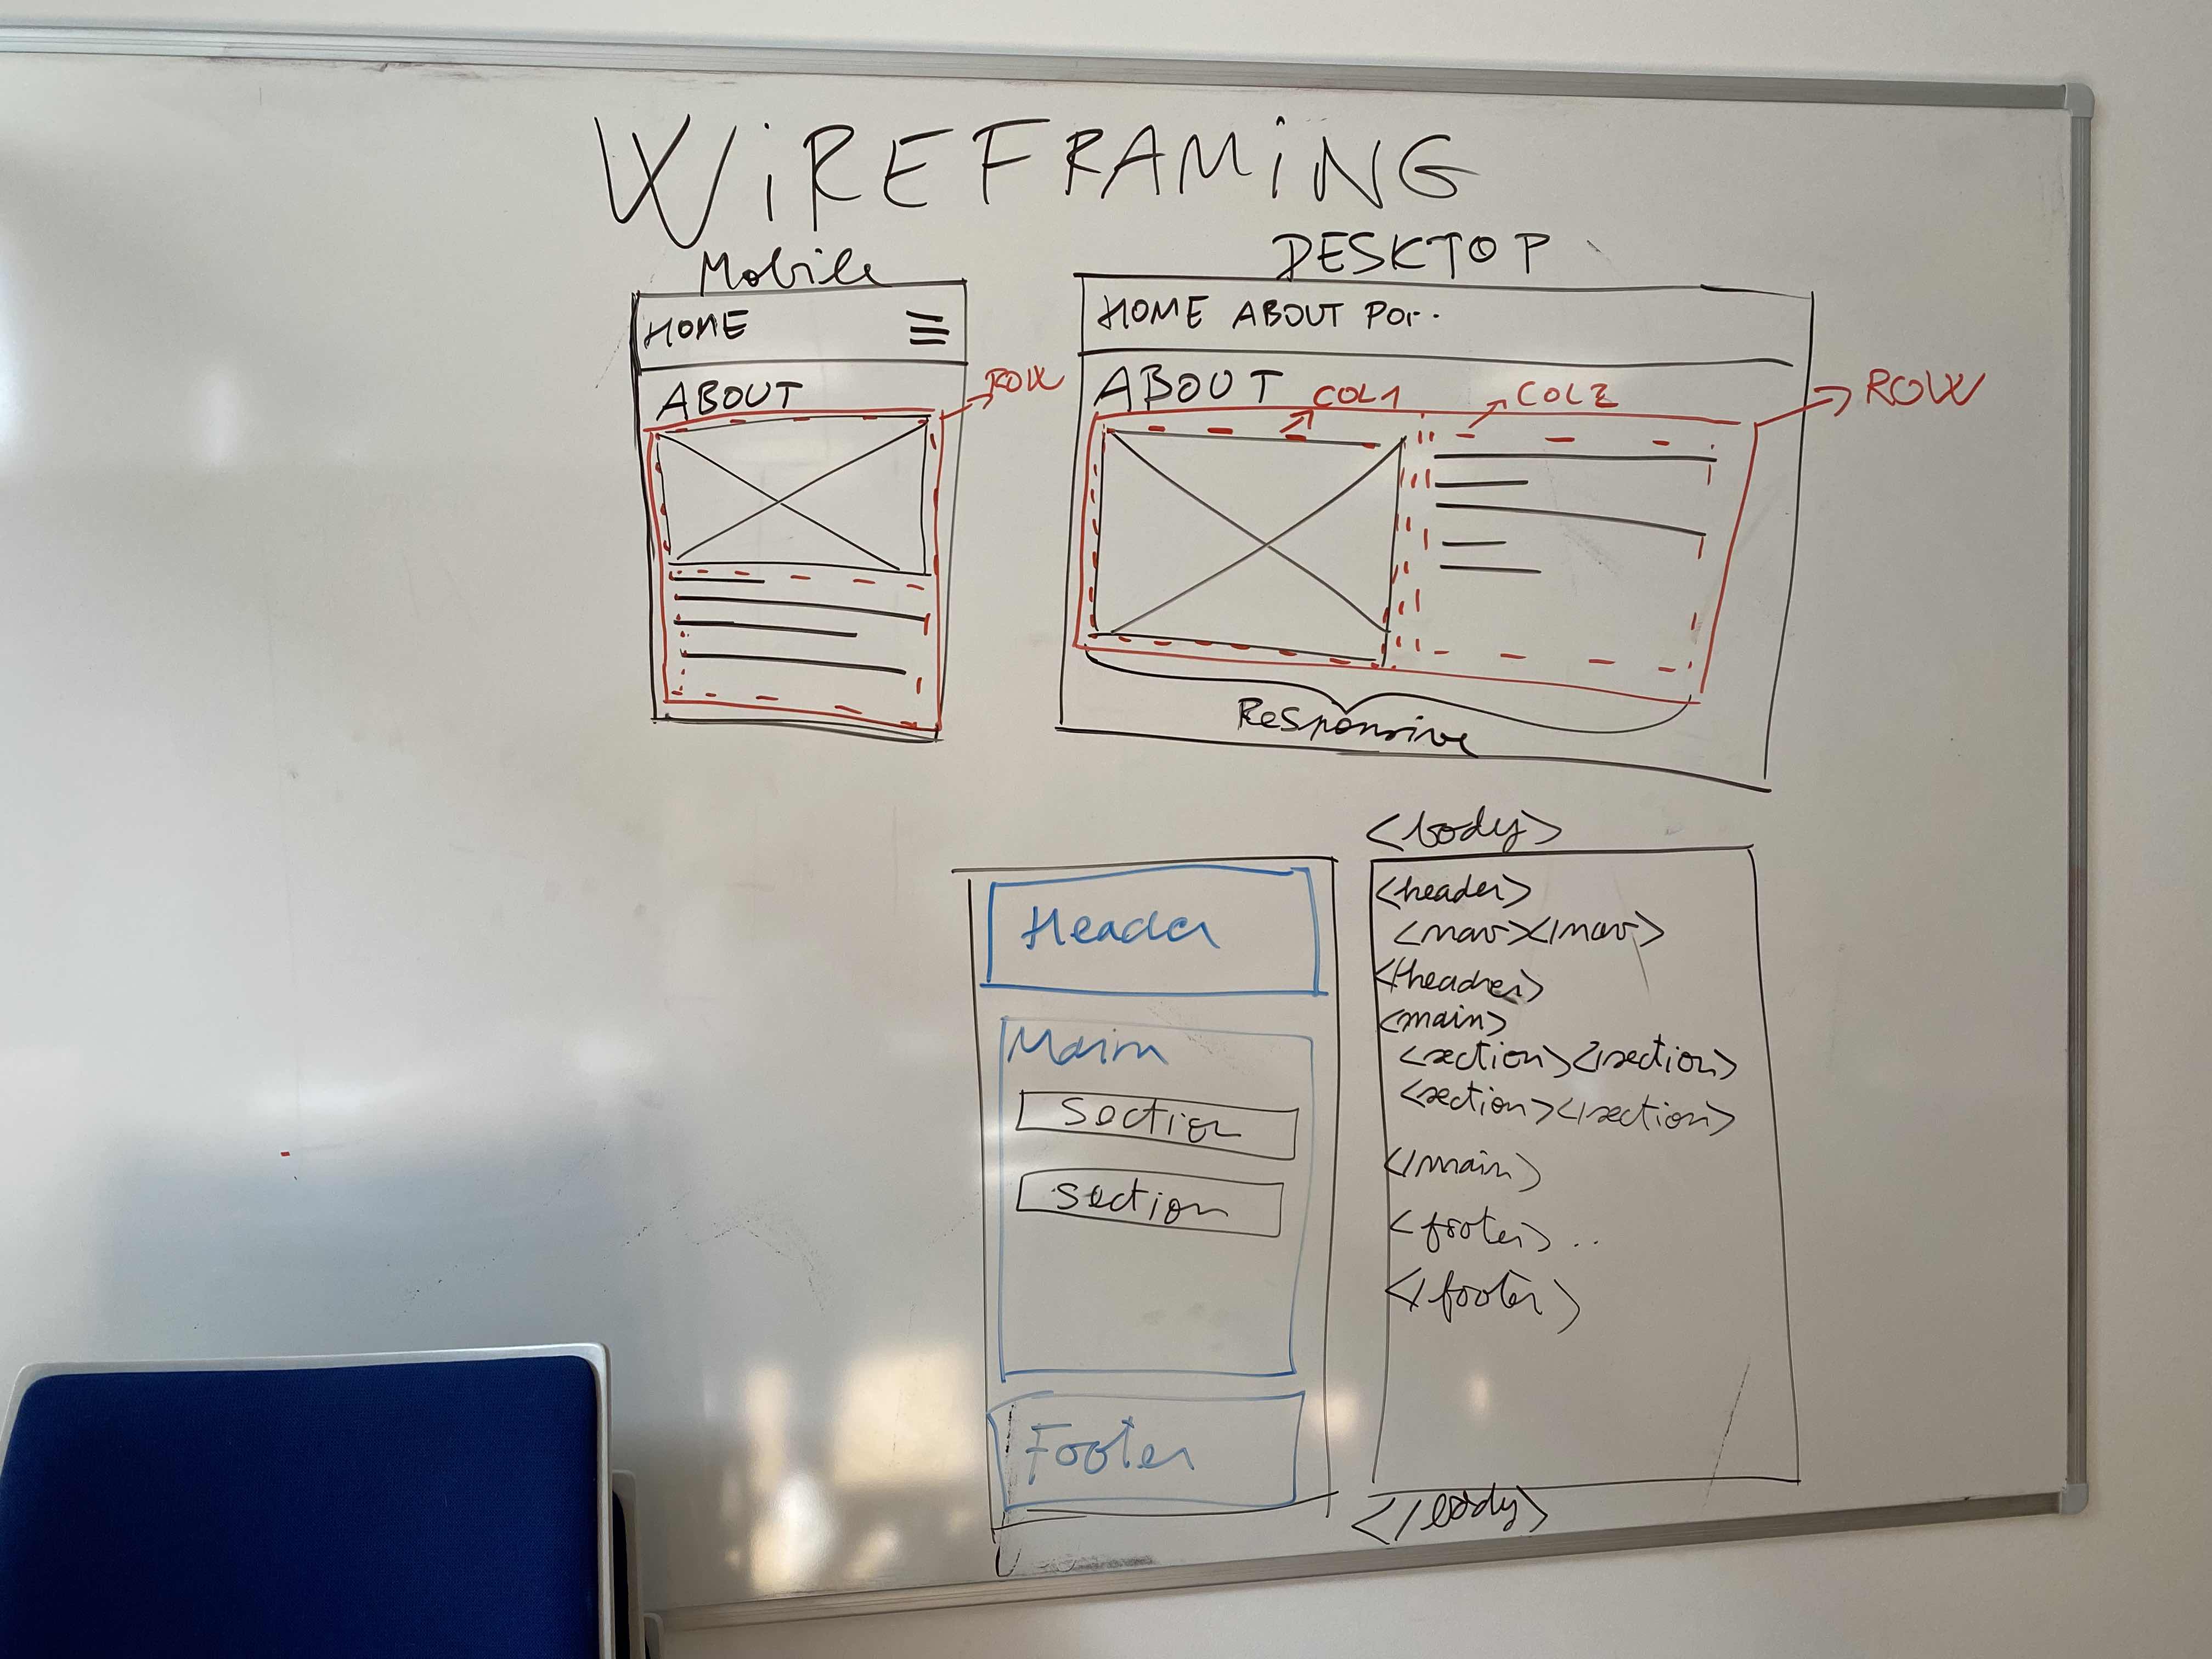 WiREFRAMiNG
Mobile
HOME
ABOUT
ROW
DESKTOP
HOME ABOUT Por..
ABOUT COL1 COL2
ROW
Responsive
Header
Main
Section
Section
Footer
<body>
<header>
<nav></nav>
</header>
<main>
<section></section>
<section></section>
</main>
<footer>..
</footer>
</body>